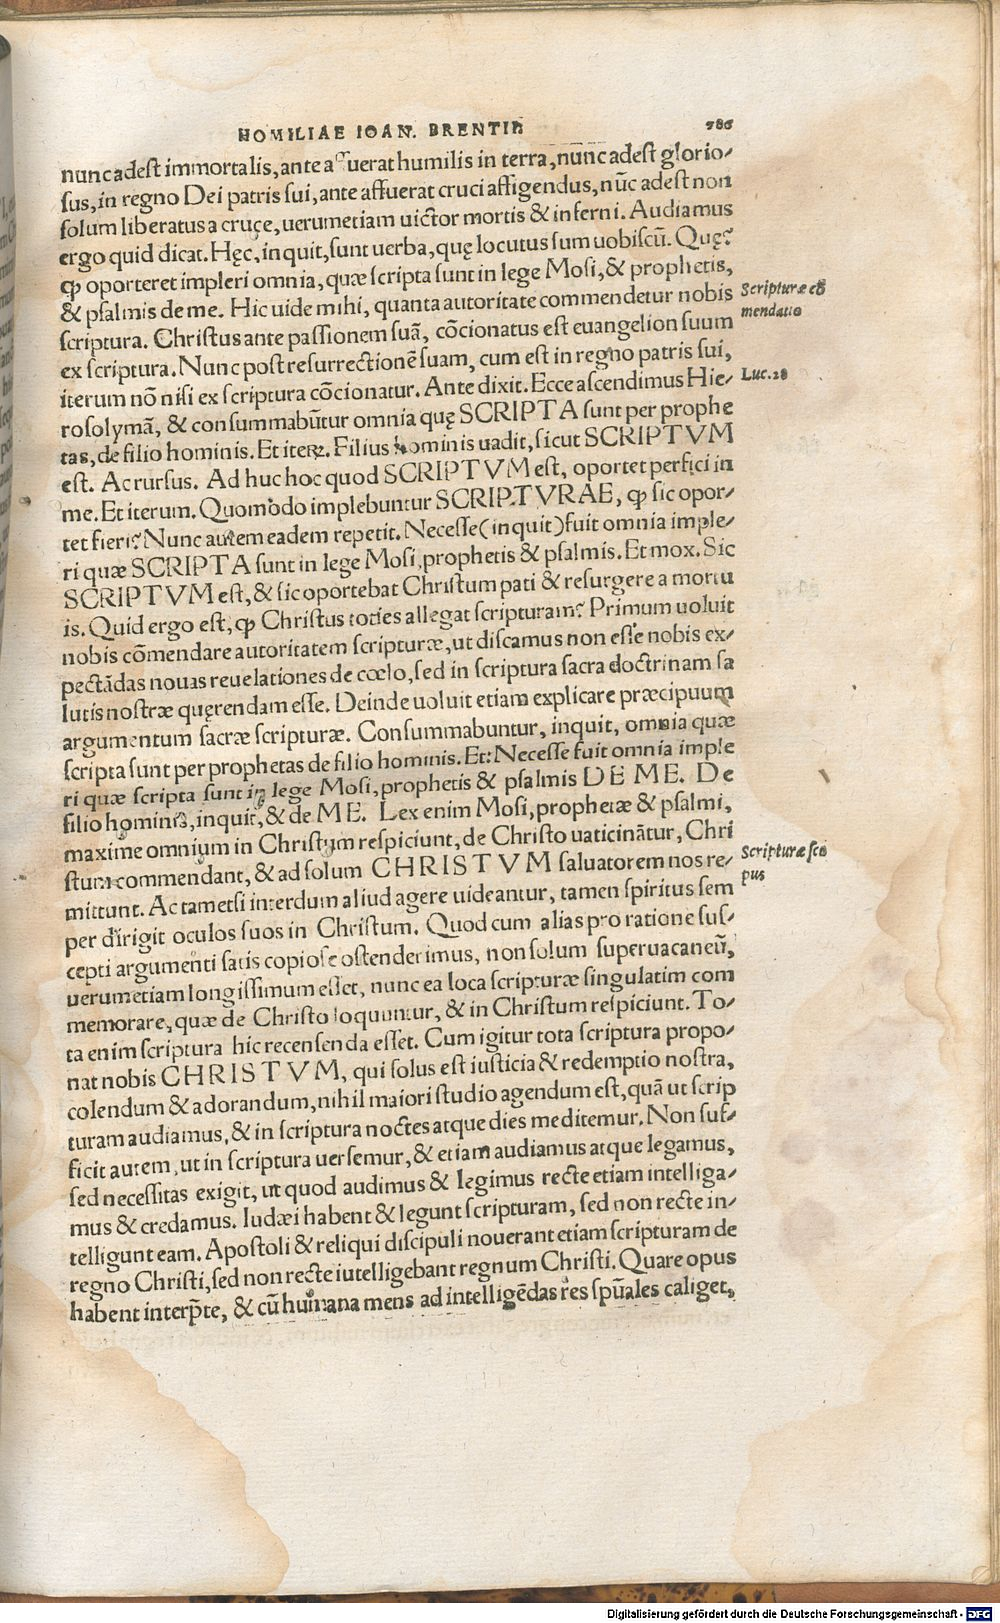 HOMILIAE IOAN. BRENTII
786
nunc adest immortalis, ante affuerat humilis in terra, nunc adest glorio-
sus, in regno Dei patris sui, ante affuerat cruci affigendus, nūc adest non
solum liberatus a cruce, uerumetiam uictor mortis & inferni. Audiamus
ergo quid dicat. Hęc, inquit, sunt uerba, quę locutus sum uobiscū. Quę?
ꝙ oporteret impleri omnia, quæ scripta sunt in lege Mosi, & prophetis,
& psalmis de me. Hic uide mihi, quanta autoritate commendetur nobis
Scripturæ cō
mendatio
scriptura. Christus ante passionem suā, cōcionatus est euangelion suum
ex scriptura. Nunc post resurrectionē suam, cum est in regno patris sui,
iterum nō nisi ex scriptura cōcionatur. Ante dixit. Ecce ascendimus Hie-
Luc. 28
rosolymā, & consummabūtur omnia quę SCRIPTA sunt per prophe
tas, de filio hominis. Et iteꝝ. Filius hominis uadit, sicut SCRIPTVM
est. Ac rursus. Ad huc hoc quod SCRIPTVM est, oportet perfici in
me. Et iterum. Quomodo implebuntur SCRIPTVRAE, ꝙ sic opor-
tet fieri? Nunc autem eadem repetit. Necesse (inquit) fuit omnia imple-
ri quæ SCRIPTA sunt in lege Mosi, prophetis & psalmis. Et mox. Sic
SCRIPTVM est, & sic oportebat Christum pati & resurgere a mortu
is. Quid ergo est, ꝙ Christus toties allegat scripturam? Primum uoluit
nobis cōmendare autoritatem scripturæ, ut discamus non esse nobis ex-
pectādas nouas reuelationes de cœlo, sed in scriptura sacra doctrinam sa
lutis nostræ quęrendam esse. Deinde uoluit etiam explicare præcipuum
argumentum sacræ scripturæ. Consummabuntur, inquit, omnia quæ
scripta sunt per prophetas de filio hominis. Et: Necesse fuit omnia imple
ri quæ scripta sunt in lege Mosi, prophetis & psalmis DE ME. De
filio hominis, inquit, & de ME. Lex enim Mosi, prophetæ & psalmi,
maxime omnium in Christum respiciunt, de Christo uaticināтur, Chri
stum commendant, & ad solum CHRISTVM saluatorem nos re-
Scripturæ sco
pus
mittunt. Ac tametsi interdum aliud agere uideantur, tamen spiritus sem
per dirigit oculos suos in Christum. Quod cum alias pro ratione sus-
cepti argumenti satis copiose ostenderimus, non solum superuacaneū,
uerumetiam longissimum esset, nunc ea loca scripturæ singulatim com
memorare, quæ de Christo loquuntur, & in Christum respiciunt. To-
ta enim scriptura hic recensenda esset. Cum igitur tota scriptura propo-
nat nobis CHRISTVM, qui solus est iusticia & redemptio nostra,
colendum & adorandum, nihil maiori studio agendum est, quā ut scrip
turam audiamus, & in scriptura noctes atque dies meditemur. Non suf-
ficit autem, ut in scriptura uersemur, & etiam audiamus atque legamus,
sed necessitas exigit, ut quod audimus & legimus recte etiam intelliga-
mus & credamus. Iudæi habent & legunt scripturam, sed non recte in-
telligunt eam. Apostoli & reliqui discipuli nouerant etiam scripturam de
regno Christi, sed non recte iutelligebant regnum Christi. Quare opus
habent interp̄te, & cū humana mens ad intelligēdas res sp̄uales caliget,
Digitalisierung gefördert durch die Deutsche Forschungsgemeinschaft - DFG